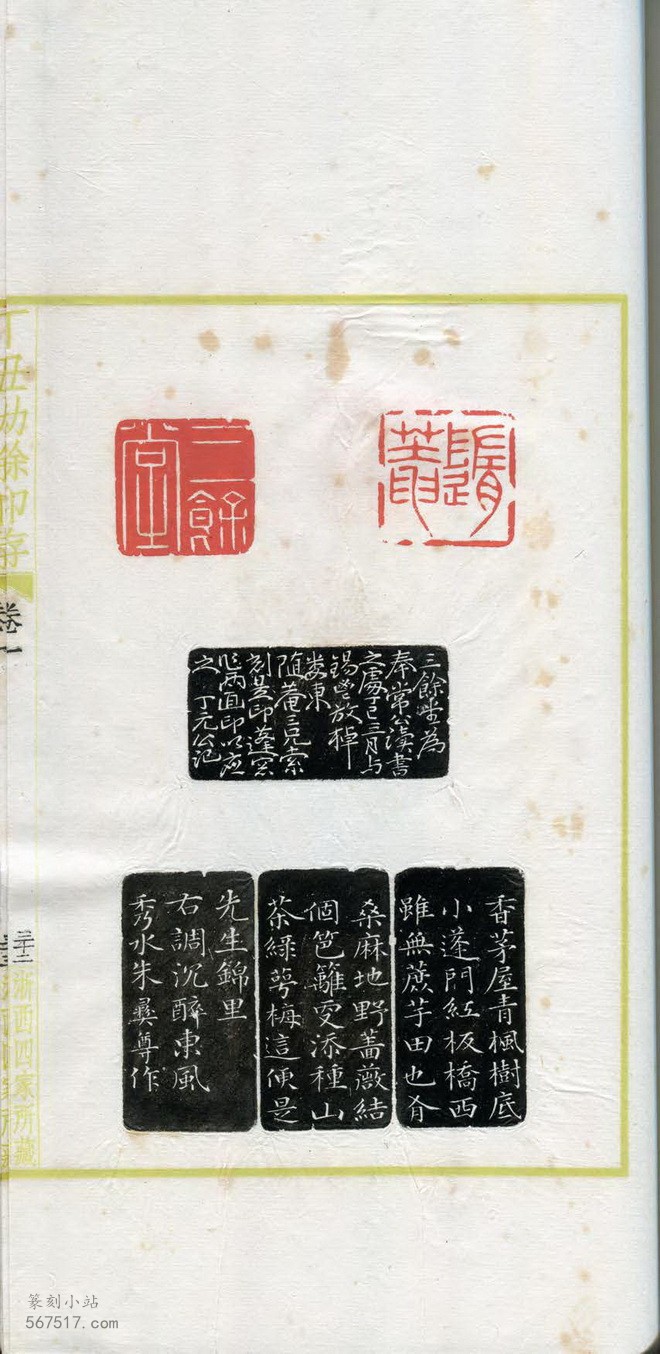 隨葊
三餘堂
三餘堂為
奉常公讀書
之處丁巳三月与
錫鬯放棹
娄東
随菴三兄索
刻是印蓬窓
作兩面印以应
之 丁元公记
香茅屋青楓樹底
小蓬門紅板橋西
雖無蔗芋田也有
桑麻地野薔薇結
個笆籬更添種山
茶綠萼梅這便是
先生錦里
右調沉醉東風
秀水朱彝尊作
丁丑劫餘印存
卷一
三十二
浙西四家所藏
篆刻小站
567517.com